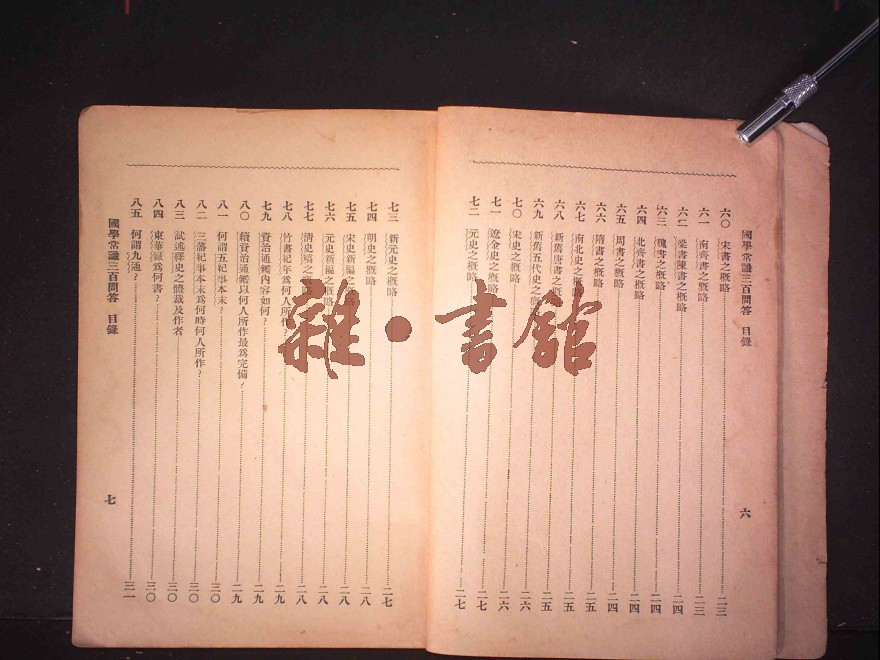 國學常識三百問答 目錄
六
六〇 宋書之概略 二三
六一 南齊書之概略 二三
六二 梁書陳書之概略 二四
六三 魏書之概略 二四
六四 北齊書之概略 二四
六五 周書之概略 二四
六六 隋書之概略 二五
六七 南北史之概略 二五
六八 新舊唐書之概略 二五
六九 新舊五代史之概略 二六
七〇 宋史之概略 二六
七一 遼金史之概略 二七
七二 元史之概略 二七
七三 新元史之概略 二七
七四 明史之概略 二八
七五 宋史新編之概略 二八
七六 元史新編之概略 二八
七七 清史稿之概略 二八
七八 竹書紀年爲何人所作? 二九
七九 資治通鑑內容如何? 二九
八〇 續資治通鑑以何人所作最爲完備? 二九
八一 何謂五紀事本末? 三〇
八二 三藩紀事本末爲何時何人所作? 三〇
八三 試述繹史之體裁及作者 三〇
八四 東華錄爲何書? 三〇
八五 何謂九通? 三一
國學常識三百問答 目錄
七
雜·書館